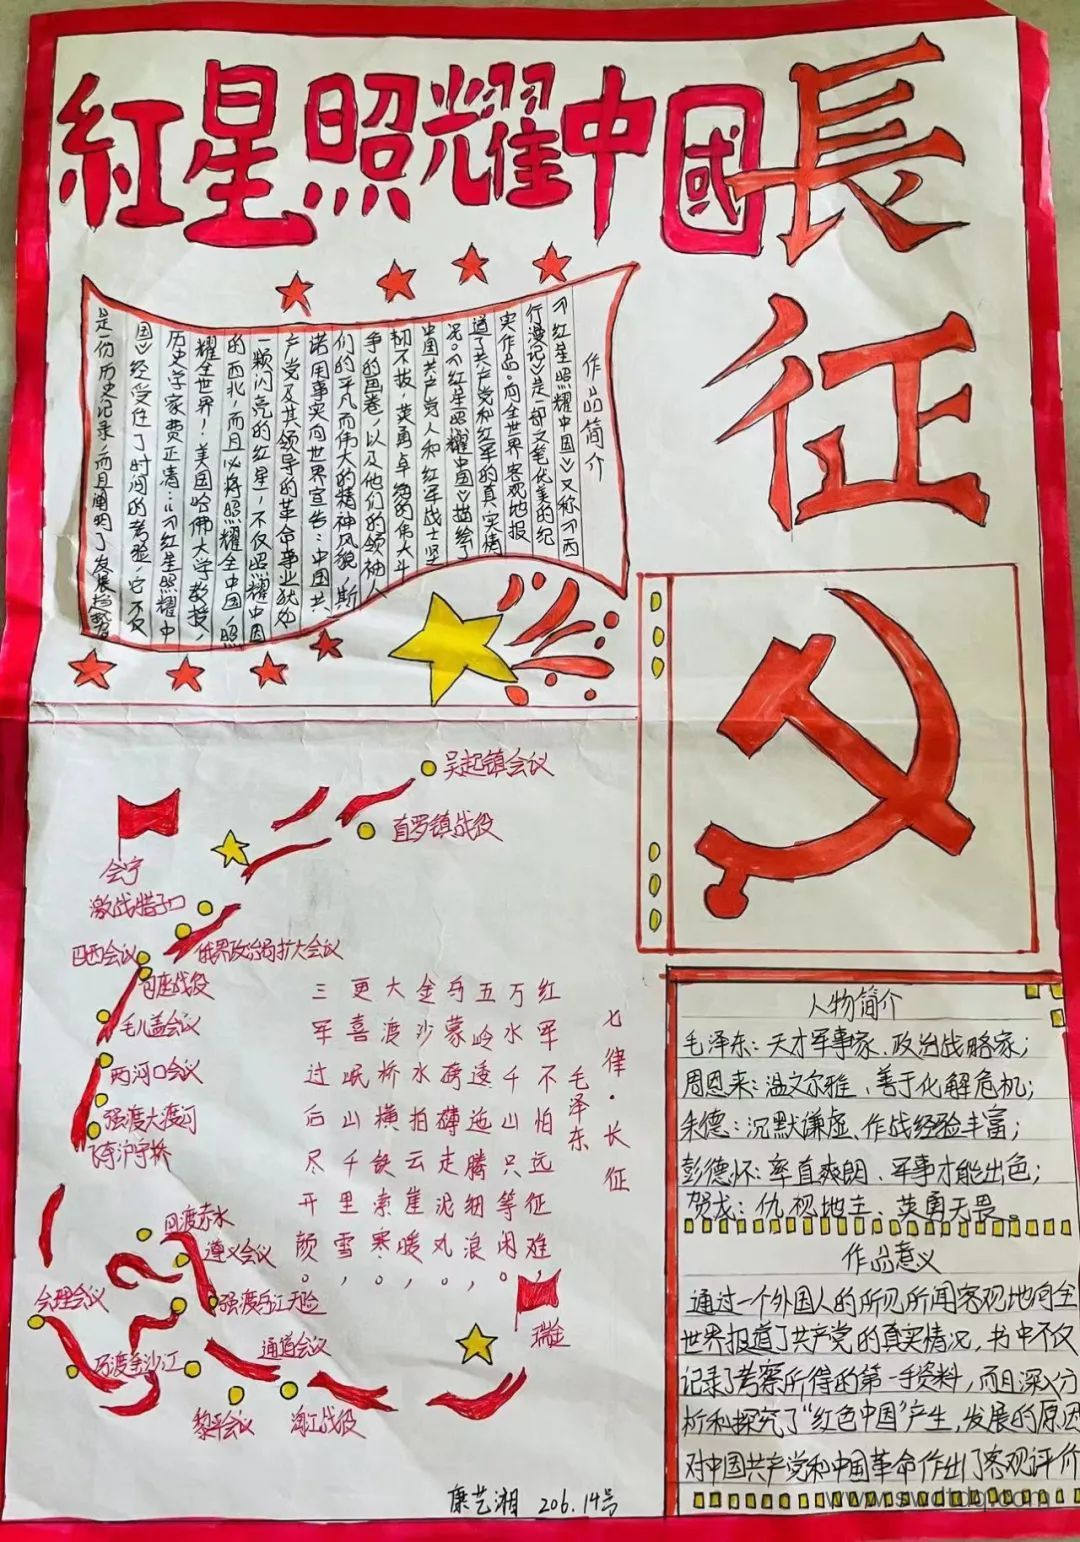 紅星照耀中國
長征
作品简介
《红星照耀中国》又称《西
行漫记》是一部文笔优美的纪
实作品。向全世界客观地报
道了共产党和红军的真实情
况。《红星照耀中国》描绘了
中国共产党人和红军战士坚
韧不拔，英勇卓绝的伟大斗
争的画卷，以及他们的领袖人
们的平凡而伟大的精神风貌，斯
诺用事实向世界宣告：中国共
产党及其领导的革命事业犹如
一颗闪亮的红星，不仅照耀中国
的西北，而且必将照耀全中国，照
耀全世界！美国哈佛大学教授，
历史学家费正清：“《红星照耀中
国》经受住了时间的考验，它不仅
是一份历史记录，而且阐明了发展趋势
吴起镇会议
直罗镇战役
会宁
激战腊子口
巴西会议
俄界政治局扩大会议
包座战役
毛儿盖会议
两河口会议
强渡大渡河
飞夺泸定桥
四渡赤水
遵义会议
会理会议
强渡乌江天险
巧渡金沙江
通道会议
黎平会议
湘江战役
瑞金
七律·长征
毛泽东
红军不怕远征难，
万水千山只等闲。
五岭逶迤腾细浪，
乌蒙磅礴走泥丸。
金沙水拍云崖暖，
大渡桥横铁索寒。
更喜岷山千里雪，
三军过后尽开颜。
人物简介
毛泽东：天才军事家、政治战略家；
周恩来：温文尔雅、善于化解危机；
朱德：沉默谦虚、作战经验丰富；
彭德怀：率直爽朗、军事才能出色；
贺龙：仇视地主、英勇无畏。
作品意义
通过一个外国人的所见所闻客观地向全
世界报道了共产党的真实情况，书中不仅
记录了考察所得的第一手资料，而且深入分
析和探究了“红色中国”产生、发展的原因
对中国共产党和中国革命作出了客观评价
康艺湘 206.14号